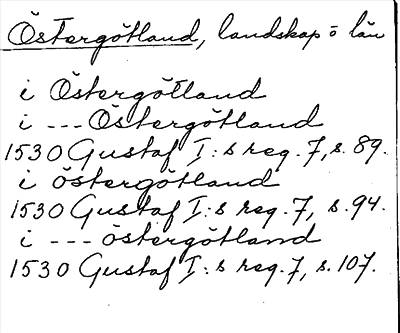 Östergötland, landskap o län
i Östergötland
i --- Östergötland
1530 Gustaf I:s reg. 7, s. 89.
i östergötland
1530 Gustaf I:s reg. 7, s. 94.
i --- östergötland
1530 Gustaf I:s reg. 7, s. 107.